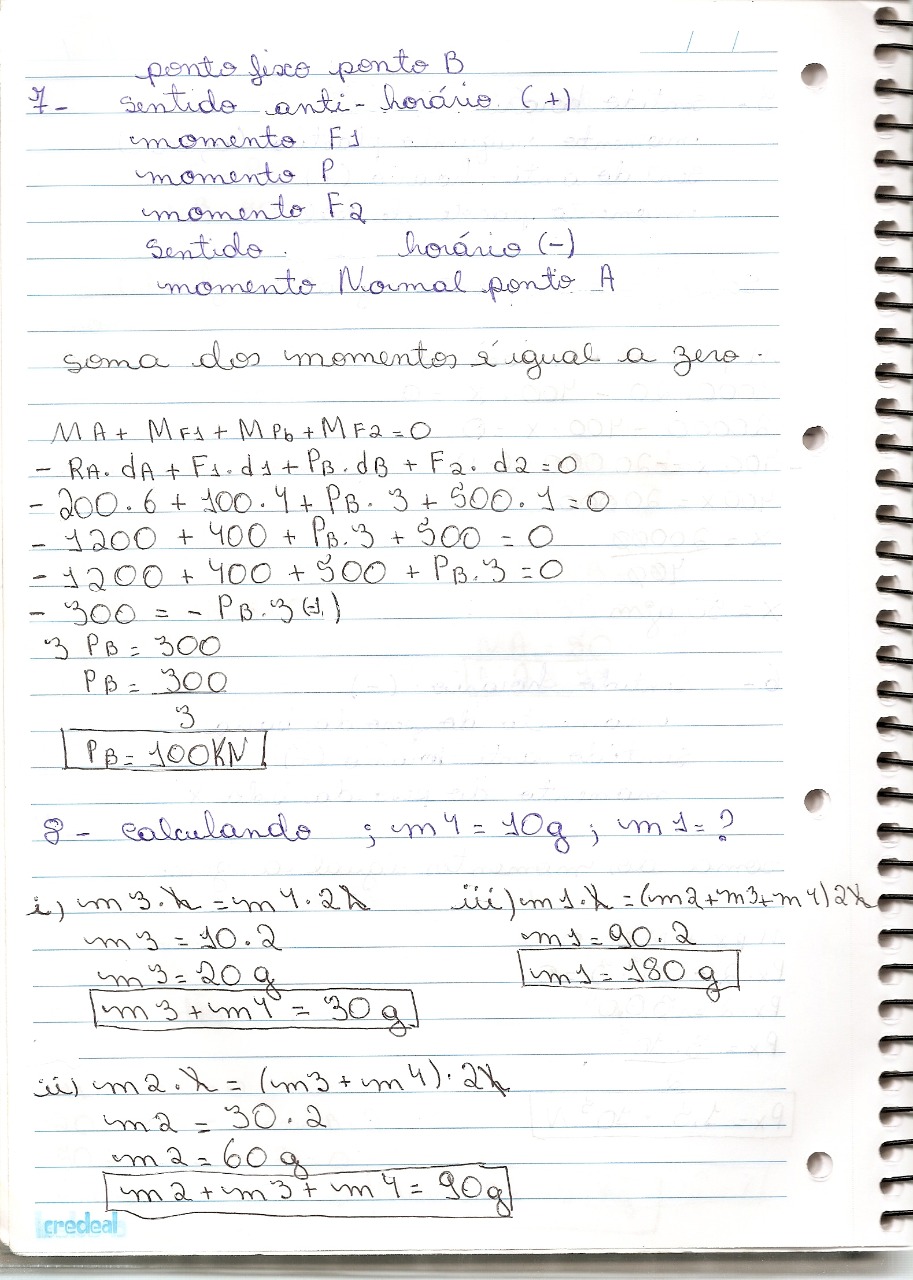 ponto fixo ponto B
7- sentido anti-horário (+)
momento F1
momento P
momento F2
sentido. horário (-)
momento Normal ponto A
soma dos momentos é igual a zero.
MA + MF1 + MPb + MF2 = 0
- RA. dA + F1. d1 + PB. dB + F2. d2 = 0
- 200.6 + 100.4 + PB. 3 + 500.1 = 0
- 1200 + 400 + PB.3 + 500 = 0
- 1200 + 400 + 500 + PB.3 = 0
- 300 = - PB.3 (-1)
3 PB = 300
PB = 300
3
PB = 100KN
8 - calculando ; m4 = 10g ; m1 = ?
i) m3.x = m4.2x
m3 = 10.2
m3 = 20 g
m3 + m4 = 30 g
iii) m1.x = (m2+m3+m4) 2x
m1 = 90.2
m1 = 180 g
ii) m2.x = (m3 + m4). 2x
m2 = 30.2
m2 = 60 g
m2 + m3 + m4 = 90g
credeal